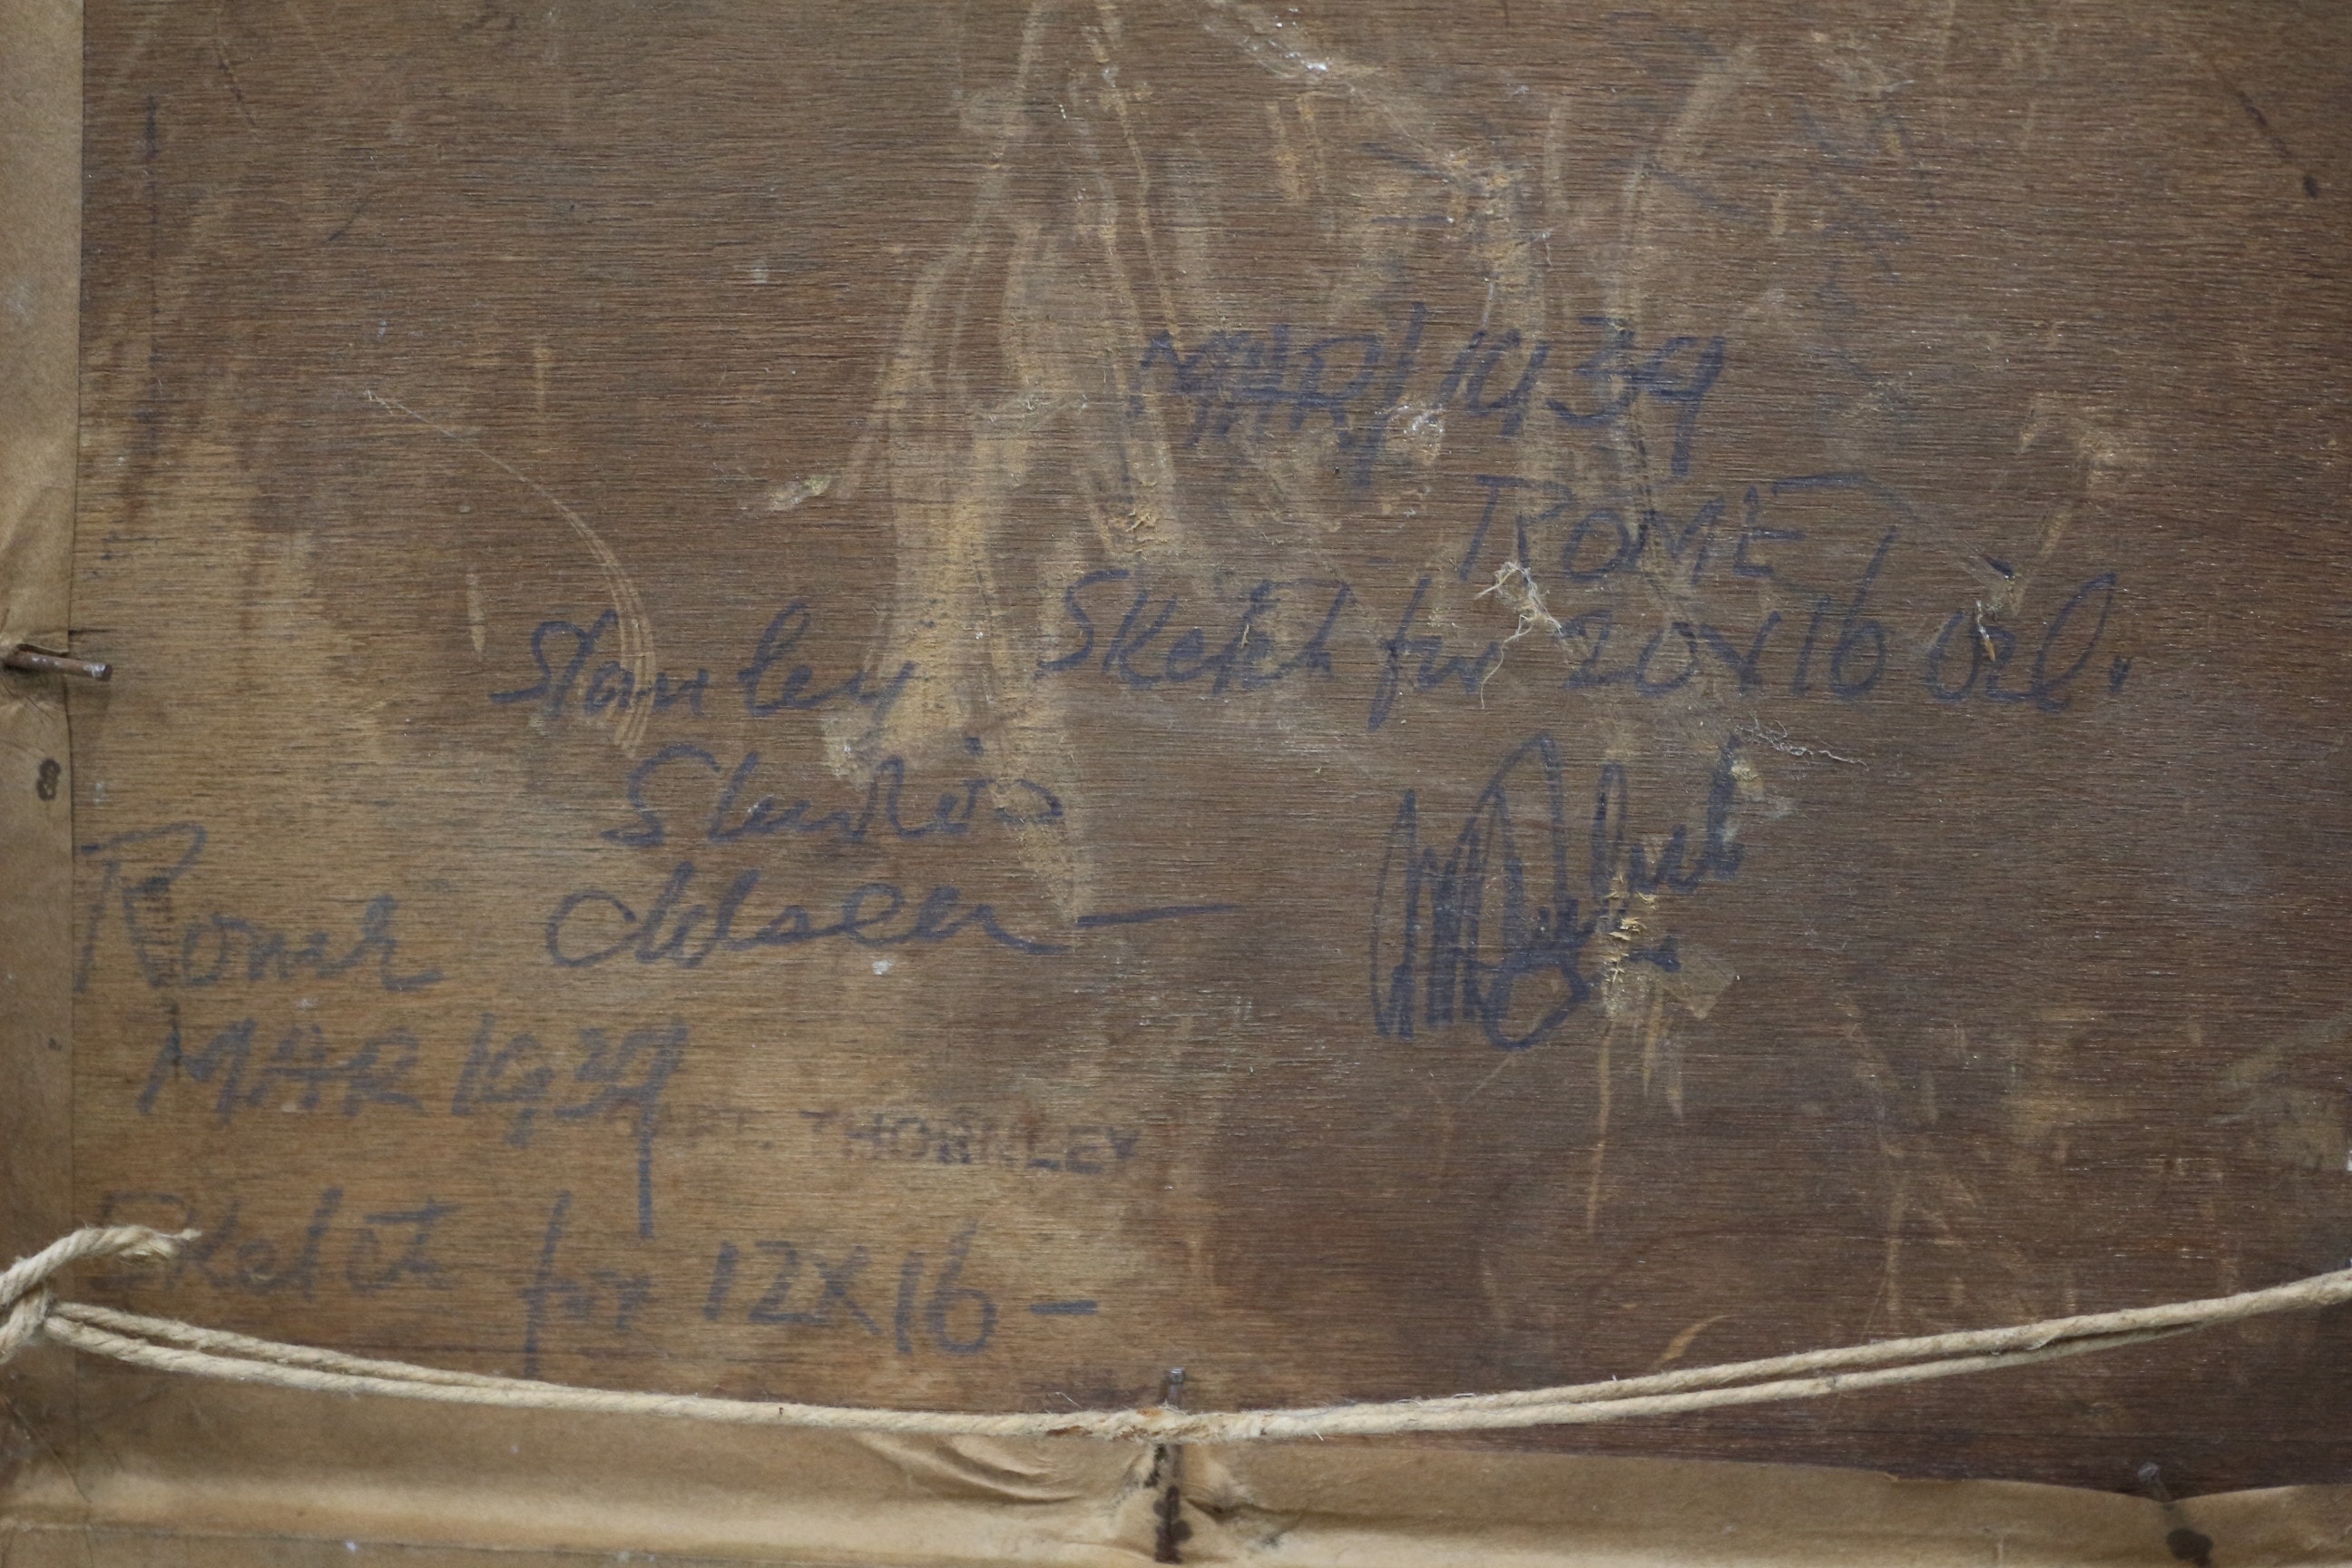 MAR/1939
ROME
Sketch for 20x16 Oil.
Stanley
Studios
Chelsea —
Rome
MAR 1939
THORNLEY
Sketch for 12x16 –